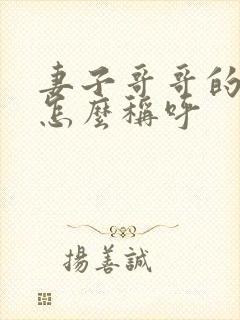 妻子哥哥的
怎麼稱呼
揚善誠